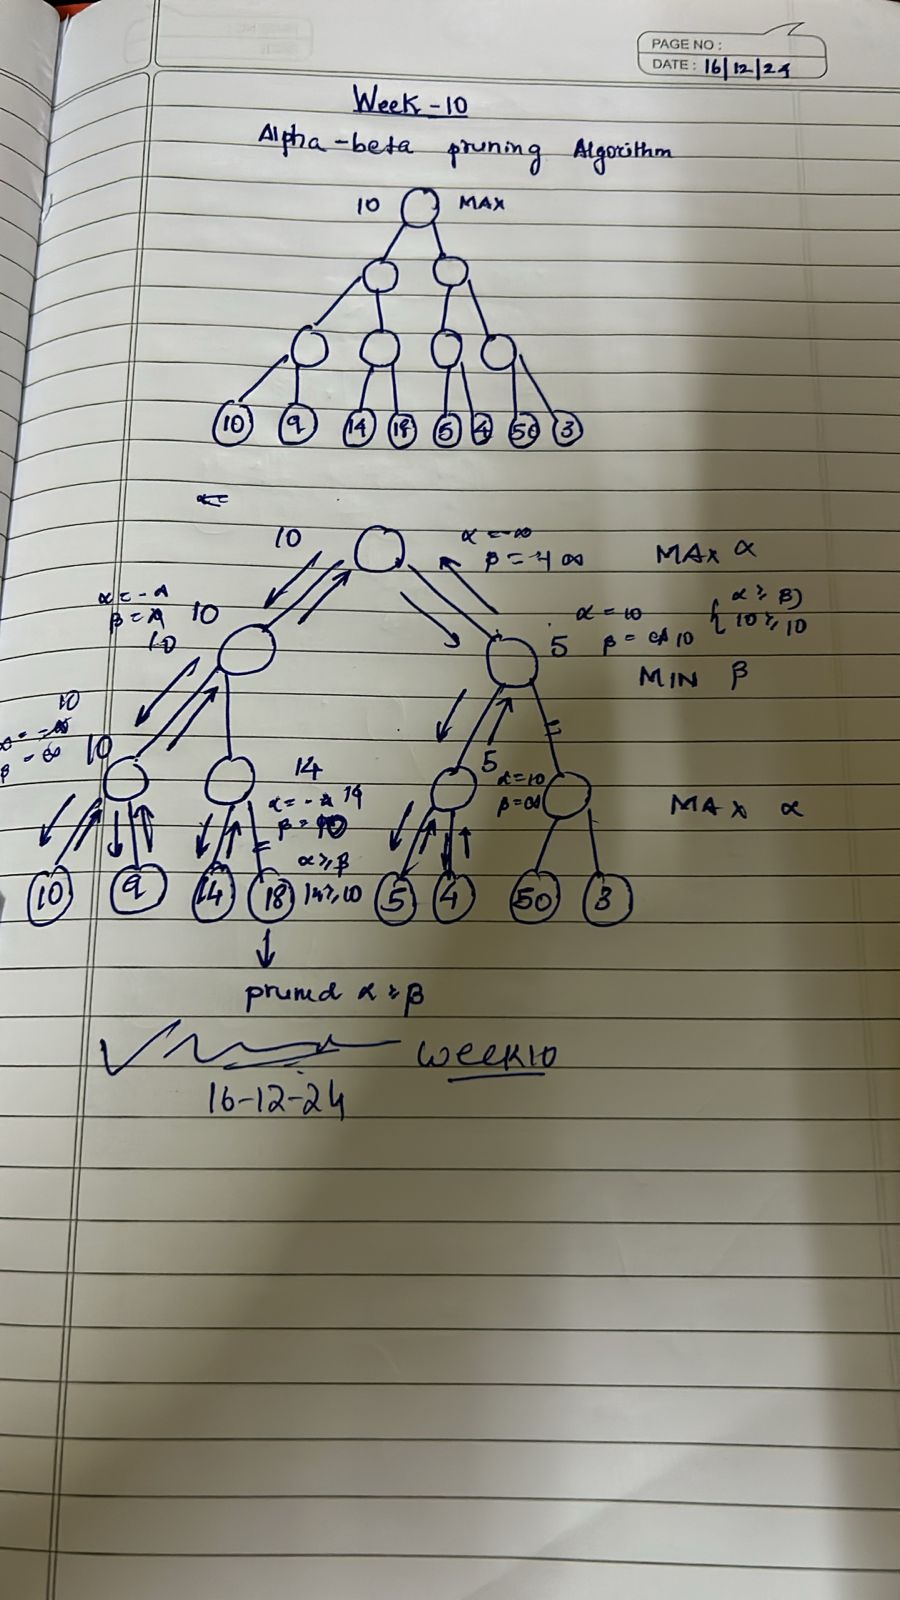 PAGE NO :
DATE : 16/12/24
Week - 10
Alpha-beta pruning Algorithm
10 MAX
10 9 14 18 5 4 50 3
10 α = -∞ MAX α
β = +∞
α = -
β =
10 10
α = 10 { α ≥ β }
5 β = 10 10 ≥ 10
MIN β
10
α = -∞
β = ∞ 10
14
α = - 14
β = 10
5 α = 10
β = ∞
MAX α
α ≥ β
10 9 14 18 14 ≥ 10 5 4 50 3
pruned α ≥ β
WEEK10
16-12-24